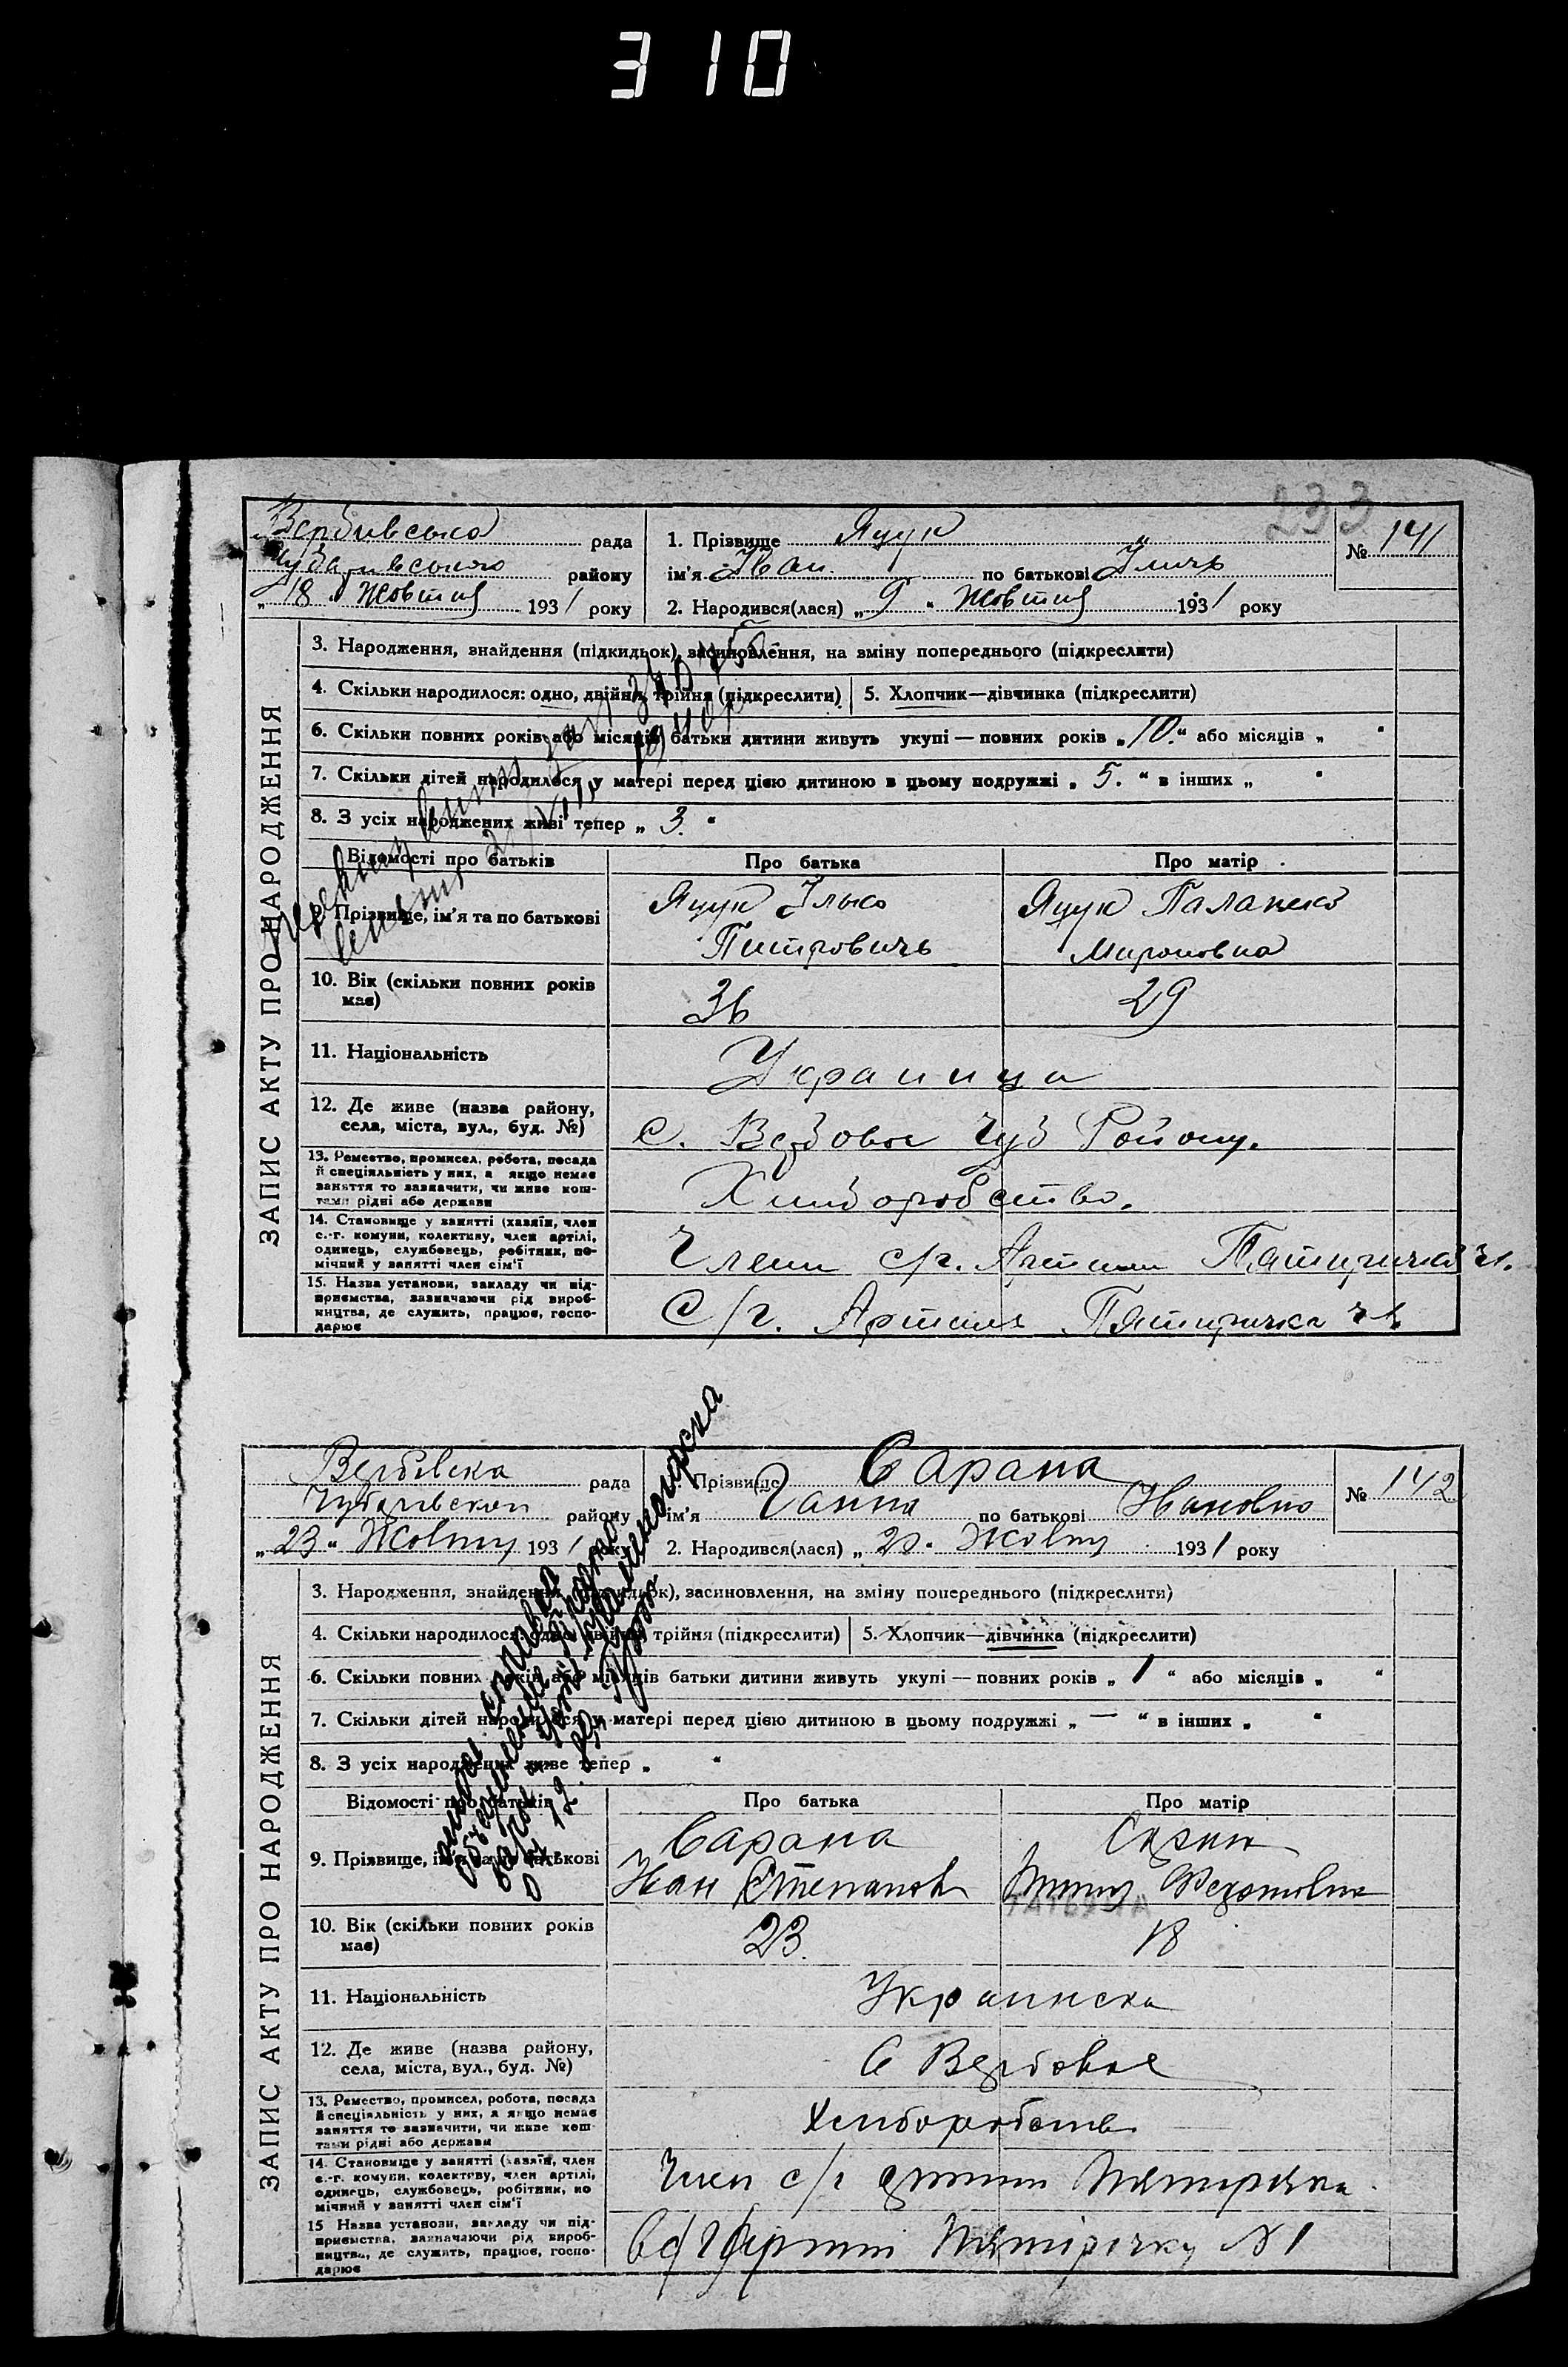 310
233
Вербивська рада
Чубарівського району
„18“ Жовтня 1931 року
1. Прізвище Яцук
ім'я Иван по батькові Ильичъ
2. Народився(лася) „9“ Жовтня 1931 року
№ 141
ЗАПИС АКТУ ПРО НАРОДЖЕННЯ
3. Народження, знайдення (підкидьок), засиновлення, на зміну попереднього (підкреслити)
4. Скільки народилося: одно, двійня, трійня (підкреслити) 5. Хлопчик—дівчинка (підкреслити)
6. Скільки повних років або місяців батьки дитини живуть укупі — повних років „10.“ або місяців „ “
7. Скільки дітей народилося у матері перед цією дитиною в цьому подружжі „5.“ в інших „ “
8. З усіх народжених живі тепер „3.“
Відомості про батьків Про батька Про матір
9. Прізвище, ім'я та по батькові
Яцук Илько
Питровичъ
Яцук Палажка
Мироновна
10. Вік (скільки повних років має) 36 29
11. Національність Украинци
12. Де живе (назва району, села, міста, вул., буд. №) с. Вербовое Чуб Району.
13. Ремество, промисел, робота, посада й спеціяльність у них, а якщо немає заняття то зазначити, чи живе коштами рідні або держави Хлиборобство.
14. Становище у занятті (хазяїн, член с.-г. комуни, колективу, член артілі, одинець, службовець, робітник, помічний у занятті член сім'ї Член с/г. Артили Пятиричка ч1.
15. Назва установи, закладу чи підприємства, зазначаючи рід виробництва, де служить, працює, господарює С/г. Артиль Пятиричка ч1.
Вербівска рада
Чубарівского району
„23“ Жовтня 1931 року
1. Прізвище Сарана
ім'я Ганна по батькові Ивановна
2. Народився(лася) „20“ Жовтн 1931 року
№ 142
ЗАПИС АКТУ ПРО НАРОДЖЕННЯ
3. Народження, знайдення (підкидьок), засиновлення, на зміну попереднього (підкреслити)
4. Скільки народилося: одно, двійня, трійня (підкреслити) 5. Хлопчик—дівчинка (підкреслити)
6. Скільки повних років або місяців батьки дитини живуть укупі — повних років „1“ або місяців „ “
7. Скільки дітей народилося у матері перед цією дитиною в цьому подружжі „—“ в інших „ “
8. З усіх народжених живе тепер „ “
Відомості про батьків Про батька Про матір
9. Прізвище, ім'я та по батькові
Сарана
Иван Степанов
Федотовна
ТАТЬЯНА
10. Вік (скільки повних років має) 23. 18
11. Національність Украинска
12. Де живе (назва району, села, міста, вул., буд. №) С Вербовое
13. Ремество, промисел, робота, посада й спеціяльність у них, а якщо немає заняття то зазначити, чи живе коштами рідні або держави Хлиборобств
14. Становище у занятті (хазяїн, член с.-г. комуни, колективу, член артілі, одинець, службовець, робітник, помічний у занятті член сім'ї Член с/г артили Пятирічка
15 Назва установи, закладу чи підприємства, зазначаючи рід виробництва, де служить, працює, господарює В с/г Артілі Пятирічку №1